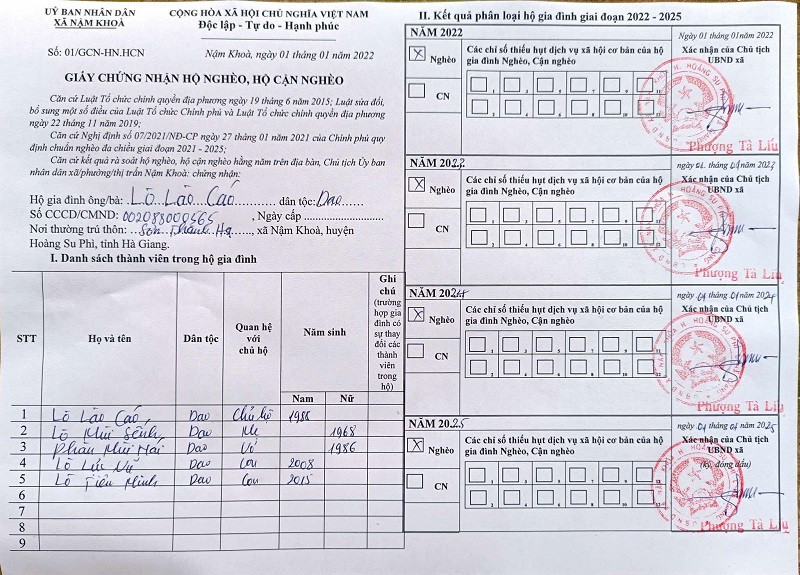 ỦY BAN NHÂN DÂN
XÃ NẬM KHOÀ
CỘNG HÒA XÃ HỘI CHỦ NGHĨA VIỆT NAM
Độc lập - Tự do - Hạnh phúc
Số: 01/GCN-HN.HCN
Nậm Khoà, ngày 01 tháng 01 năm 2022
GIẤY CHỨNG NHẬN HỘ NGHÈO, HỘ CẬN NGHÈO
Căn cứ Luật Tổ chức chính quyền địa phương ngày 19 tháng 6 năm 2015; Luật sửa đổi,
bổ sung một số điều của Luật Tổ chức Chính phủ và Luật Tổ chức chính quyền địa phương
ngày 22 tháng 11 năm 2019;
Căn cứ Nghị định số 07/2021/NĐ-CP ngày 27 tháng 01 năm 2021 của Chính phủ quy
định chuẩn nghèo đa chiều giai đoạn 2021 - 2025;
Căn cứ kết quả rà soát hộ nghèo, hộ cận nghèo hằng năm trên địa bàn, Chủ tịch Ủy ban
nhân dân xã/phường/thị trấn Nậm Khoà: chứng nhận:
Hộ gia đình ông/bà: Lò Lào Cáo dân tộc: Dao
Số CCCD/CMND: 002088000565, Ngày cấp
Nơi thường trú thôn: Sơn Thành Hạ, xã Nậm Khoà, huyện
Hoàng Su Phì, tỉnh Hà Giang.
I. Danh sách thành viên trong hộ gia đình
STT Họ và tên Dân tộc Quan hệ với chủ hộ Năm sinh Ghi chú (trường hợp gia đình có sự thay đổi các thành viên trong hộ)
Nam Nữ
1 Lò Lào Cáo Dao Chủ hộ 1988
2 Lò Mùi Sểnh Dao Mẹ 1968
3 Phàn Mùi Mái Dao Vợ 1986
4 Lò Dao Con 2008
5 Lò Tiến Minh Dao Con 2015
6
7
8
9
II. Kết quả phân loại hộ gia đình giai đoạn 2022 - 2025
NĂM 2022
X Nghèo
CN
Các chỉ số thiếu hụt dịch vụ xã hội cơ bản của hộ
gia đình Nghèo, Cận nghèo
1 3 5 7 9 11
2 4 6 8 10 12
Ngày 01 tháng 01 năm 2022
Xác nhận của Chủ tịch
UBND xã
Phượng Tà Líu
NĂM 2023
X Nghèo
CN
Các chỉ số thiếu hụt dịch vụ xã hội cơ bản của hộ
gia đình Nghèo, Cận nghèo
1 3 5 7 9 11
2 4 6 8 10 12
ngày 01 tháng 01 năm 2023
Xác nhận của Chủ tịch
UBND xã
Phượng Tà Líu
NĂM 2024
X Nghèo
CN
Các chỉ số thiếu hụt dịch vụ xã hội cơ bản của hộ
gia đình Nghèo, Cận nghèo
1 3 5 7 9 11
2 4 6 8 10 12
ngày 01 tháng 01 năm 2024
Xác nhận của Chủ tịch
UBND xã
Phượng Tà Líu
NĂM 2025
X Nghèo
CN
Các chỉ số thiếu hụt dịch vụ xã hội cơ bản của hộ
gia đình Nghèo, Cận nghèo
1 3 5 7 9 11
2 4 6 8 10 12
ngày 01 tháng 01 năm 2025
Xác nhận của Chủ tịch
UBND xã
(ký, đóng dấu)
Phượng Tà Líu